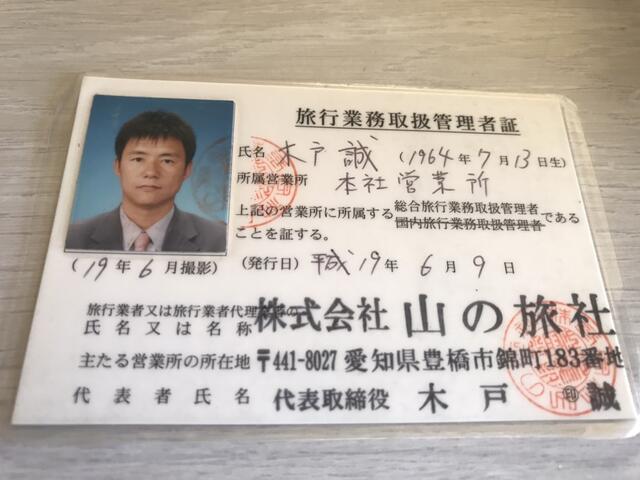 旅行業務取扱管理者証
氏名 木戸 誠 (1964年7月13日生)
所属営業所 本社営業所
上記の営業所に所属する 総合旅行業務取扱管理者 である
国内旅行業務取扱管理者
ことを証する。
(19年6月撮影) (発行日) 平成19年6月9日
旅行業者又は旅行業者代理業者の
氏名又は名称 株式会社 山の旅社
主たる営業所の所在地 〒441-8027 愛知県豊橋市錦町183番地
代表者氏名 代表取締役 木戸 誠 印